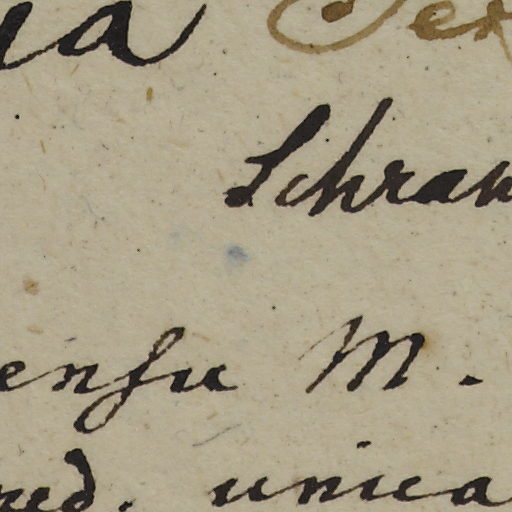 ia Ser
Schran
ensu M.
red. unica